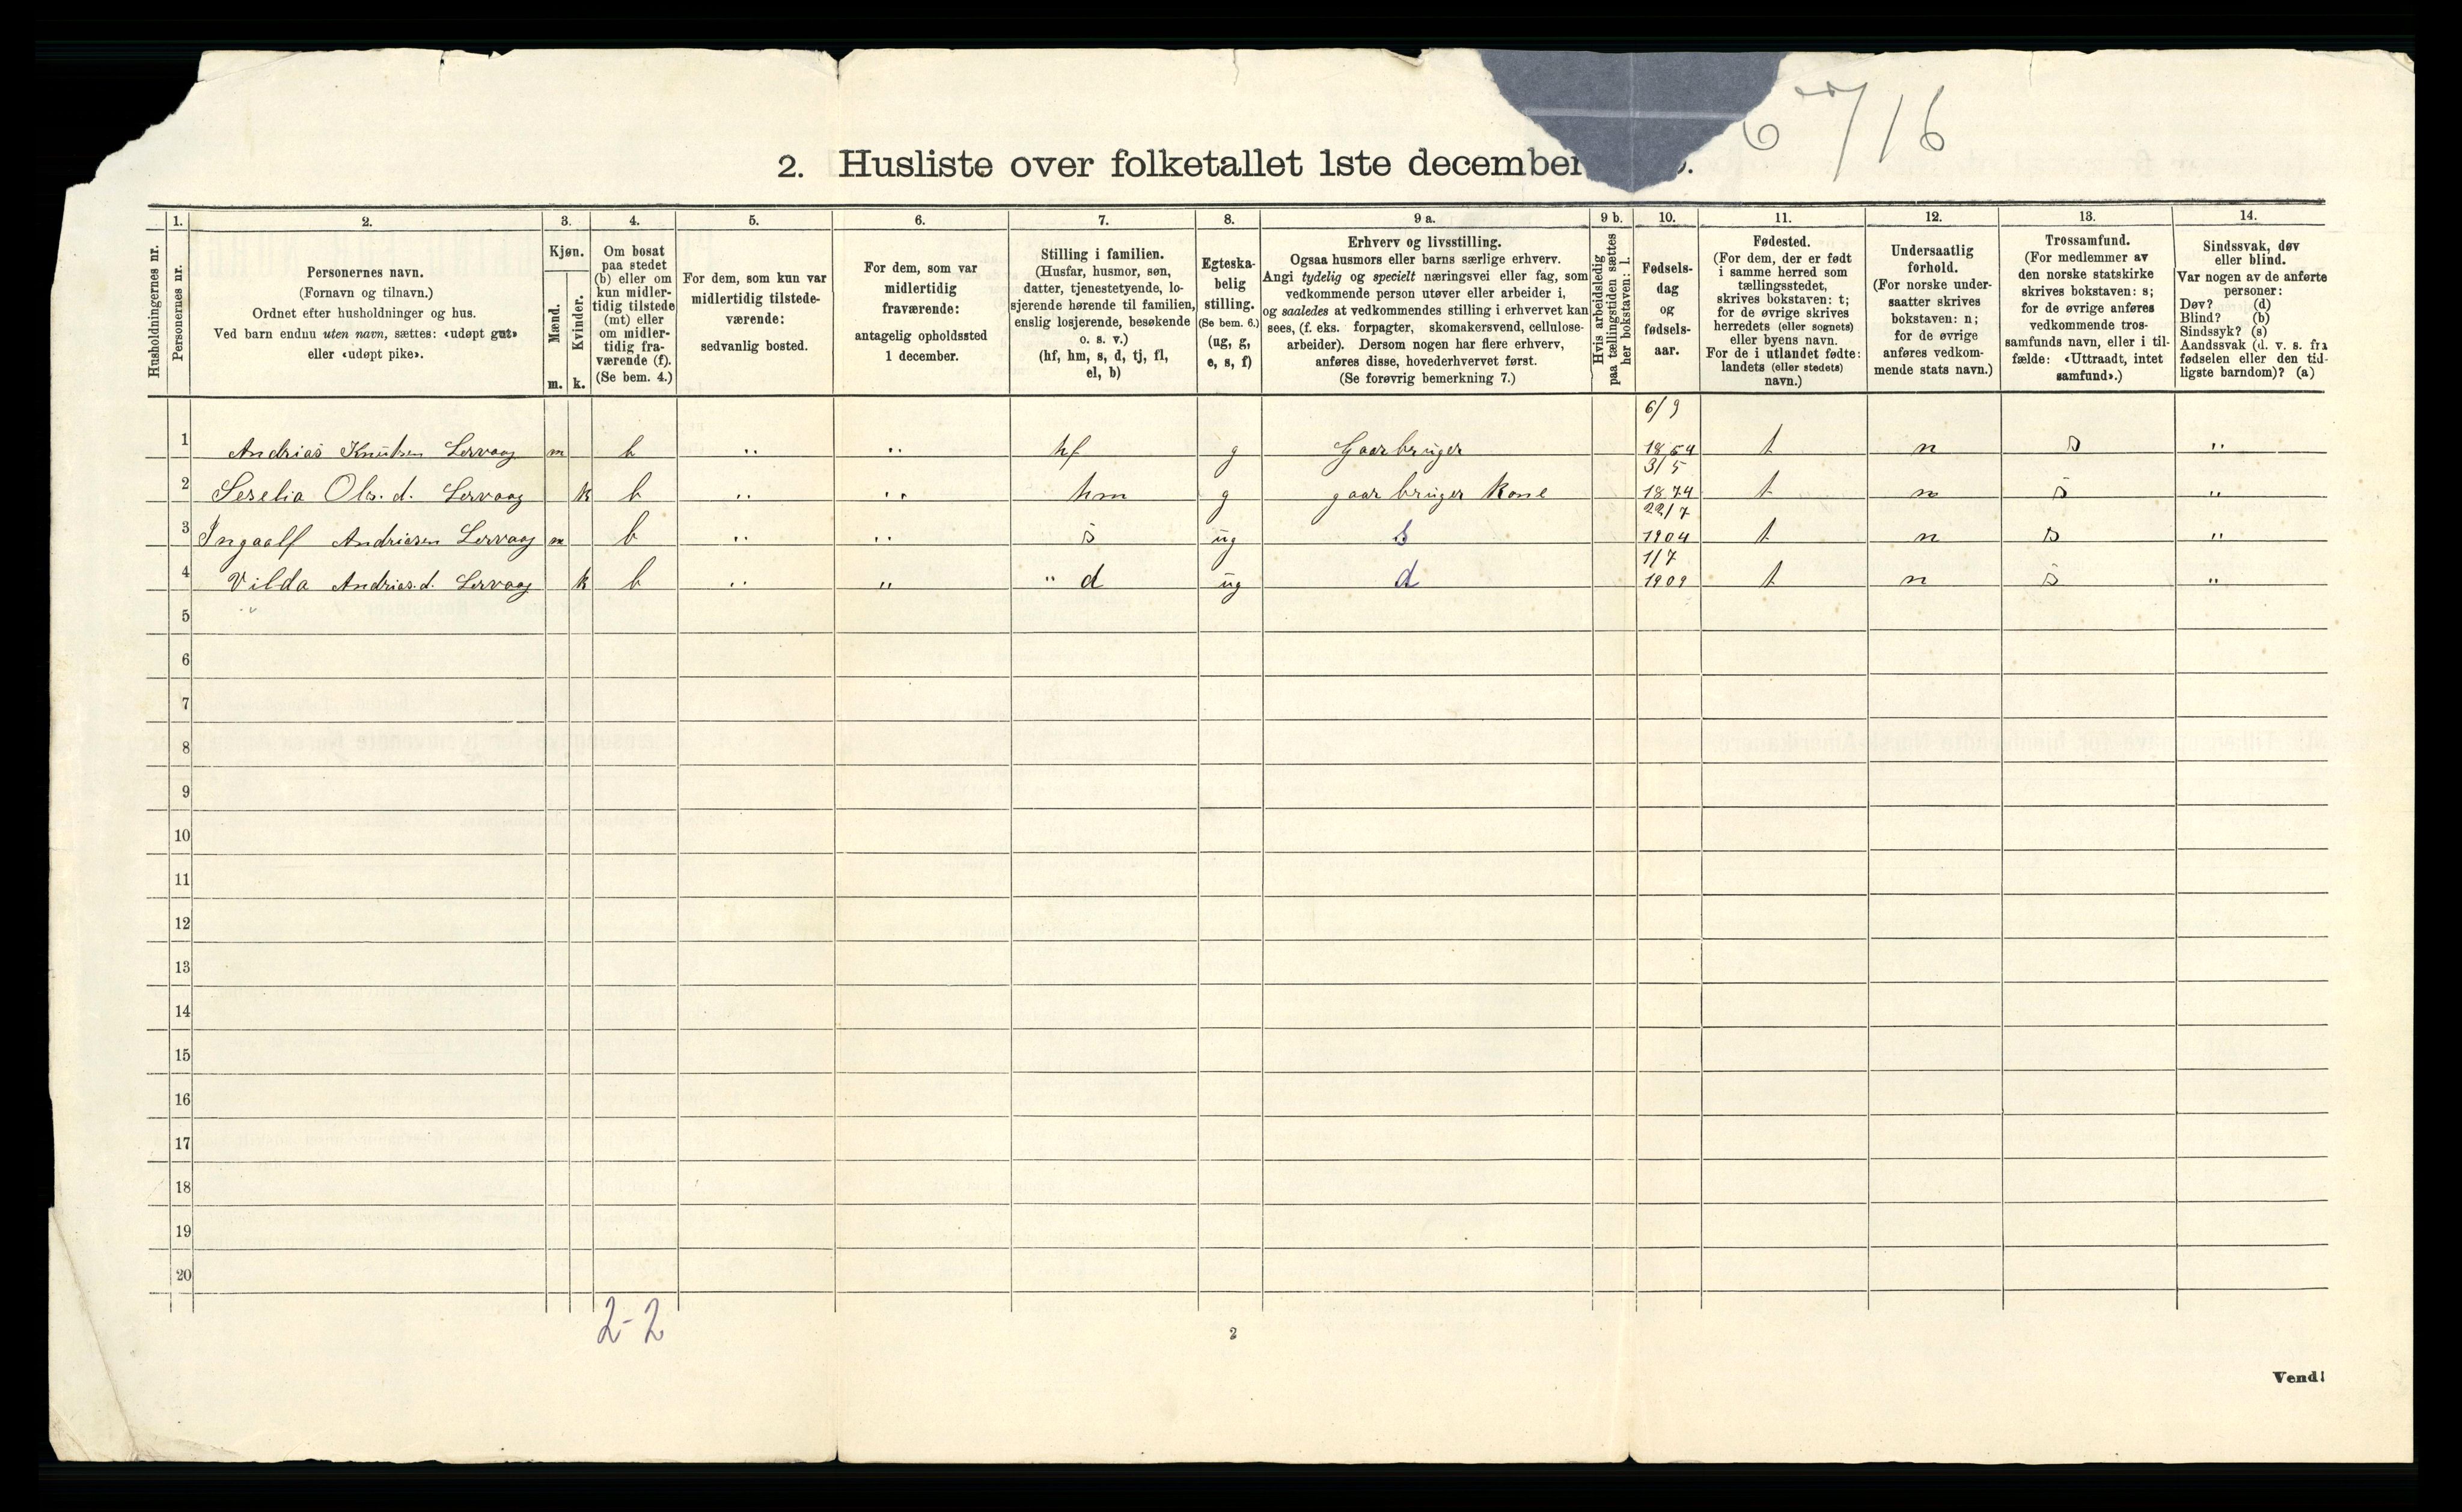 6716
2. Husliste over folketallet 1ste december
1. 2. 3. 4. 5. 6. 7. 8. 9 a. 9 b. 10. 11. 12. 13. 14.
Husholdningernes nr.
Personernes nr.
Personernes navn.
(Fornavn og tilnavn.)
Ordnet efter husholdninger og hus.
Ved barn endnu uten navn, sættes: «udøpt gut»
eller «udøpt pike».
Kjøn.
Mænd.
Kvinder.
m. k.
Om bosat
paa stedet
(b) eller om
kun midler-
tidig tilstede
(mt) eller
om midler-
tidig fra-
værende (f).
(Se bem. 4.)
For dem, som kun var
midlertidig tilstede-
værende:
sedvanlig bosted.
For dem, som var
midlertidig
fraværende:
antagelig opholdssted
1 december.
Stilling i familien.
(Husfar, husmor, søn,
datter, tjenestetyende, lo-
sjerende hørende til familien,
enslig losjerende, besøkende
o. s. v.)
(hf, hm, s, d, tj, fl,
el, b)
Egteska-
belig
stilling.
(Se bem. 6.)
(ug, g,
e, s, f)
Erhverv og livsstilling.
Ogsaa husmors eller barns særlige erhverv.
Angi tydelig og specielt næringsvei eller fag, som
vedkommende person utøver eller arbeider i,
og saaledes at vedkommendes stilling i erhvervet kan
sees, (f. eks. forpagter, skomakersvend, cellulose-
arbeider). Dersom nogen har flere erhverv,
anføres disse, hovederhvervet først.
(Se forøvrig bemerkning 7.)
Hvis arbeidsledig
paa tællingstiden sættes
her bokstaven: l.
Fødsels-
dag
og
fødsels-
aar.
Fødested.
(For dem, der er født
i samme herred som
tællingsstedet,
skrives bokstaven: t;
for de øvrige skrives
herredets (eller sognets)
eller byens navn.
For de i utlandet fødte:
landets (eller stedets)
navn.)
Undersaatlig
forhold.
(For norske under-
saatter skrives
bokstaven: n;
for de øvrige
anføres vedkom-
mende stats navn.)
Trossamfund.
(For medlemmer av
den norske statskirke
skrives bokstaven: s;
for de øvrige anføres
vedkommende tros-
samfunds navn, eller i til-
fælde: «Uttraadt, intet
samfund».)
Sindssvak, døv
eller blind.
Var nogen av de anførte
personer:
Døv? (d)
Blind? (b)
Sindssyk? (s)
Aandssvak (d. v. s. fra
fødselen eller den tid-
ligste barndom)? (a)
6/9
1 Andrias Knutsen Lervaag m b " " hf g Gaarbruger 1864 t n s "
3/5
2 Serelia Ols. d. Lervaag k b " " hm g gaar bruger Kone 1874 t n s "
22/7
3 Ingaalf Andriasen Lervaag m b " " s ug s 1904 t n s "
1/7
4 Vilda Andrias. d. Lervaag k b " " " d ug d 1909 t n s "
5 "
6
7
8
9
10
11
12
13
14
15
16
17
18
19
20
2-2
2
Vend!